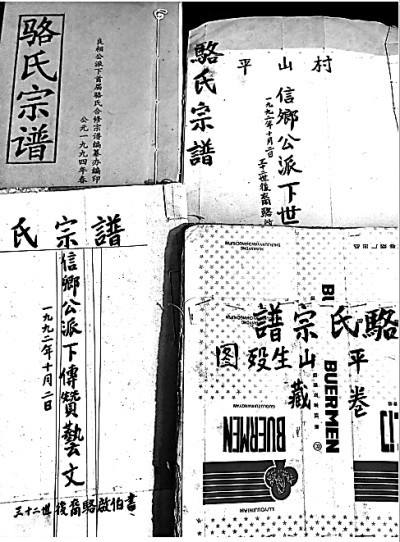 骆氏宗谱
良相公派下首届骆氏合修宗谱编纂办编印
公元一九九四年春
平山村
駱氏宗譜
信鄉公派下世
一九九二年十月二日
三十二世後裔駱
氏宗譜
信鄉公派下傳贊藝文
一九九二年十月二日
三十二世後裔駱啟伯書
駱氏宗譜
卷
平山生殁图
藏
BUERMEN
BUERMEN